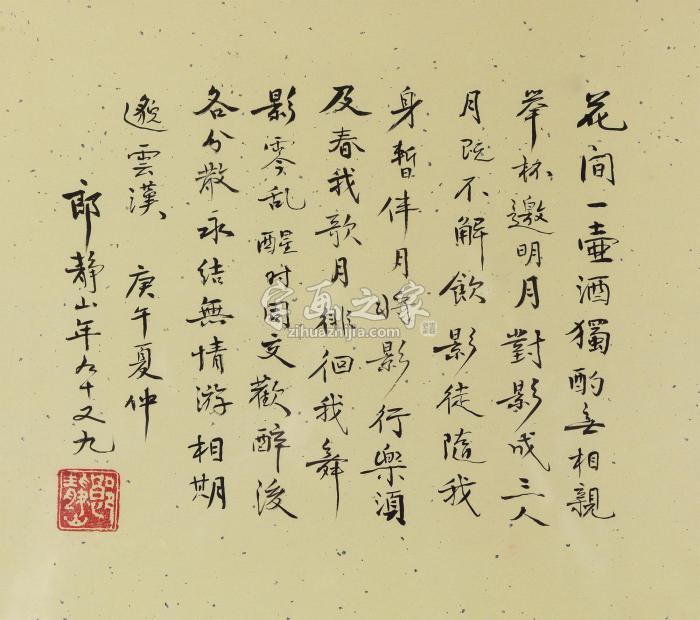 花間一壷酒獨酌無相親
举杯邀明月對影成三人
月既不解飲影徒隨我
身暫伴月将影行樂須
及春我歌月徘徊我舞
影零乱醒时同交歡醉後
各分散永结無情游相期
邈雲漢 庚午夏仲
郎静山年九十又九
郎静山
字画之家
zihuazhijia.com